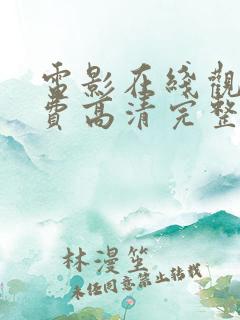 電影在綫觀
費高清完整
林漫笙
未经同意禁止转载